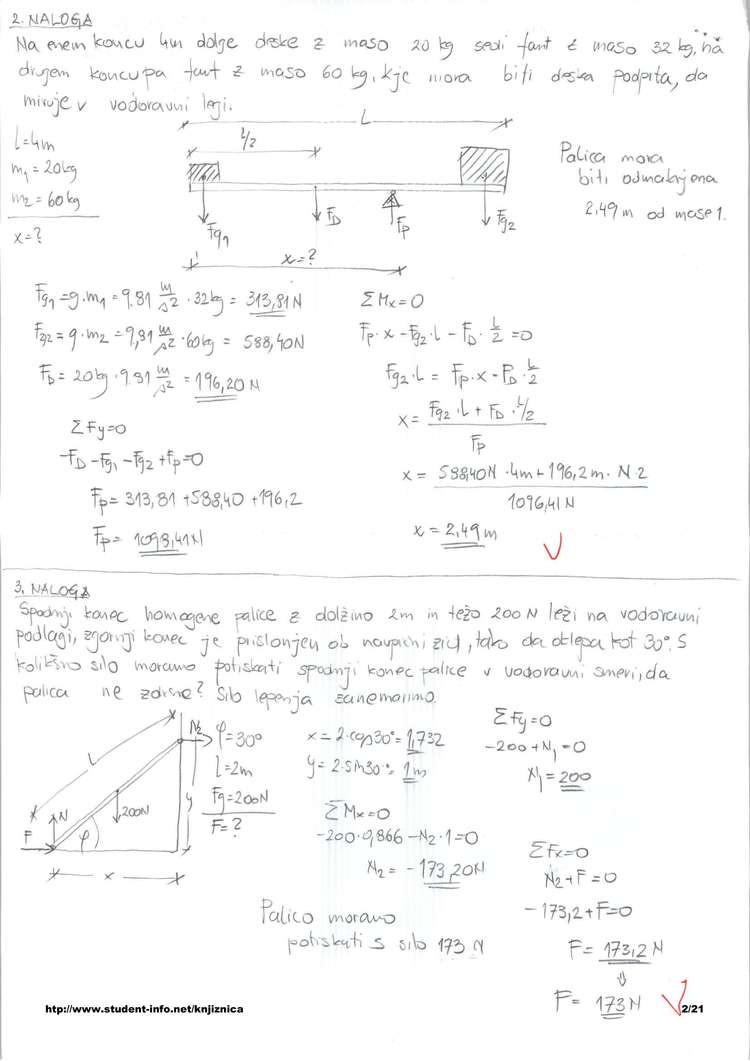 2. NALOGA
Na enem koncu 4m dolge deske z maso 20 kg sedi fant z maso 32 kg, na
drugem koncu pa fant z maso 60 kg, kje mora biti deska podprta, da
miruje v vodoravni legi.
l=4m
m₁=20kg
m₂=60kg
x=?
L
L/2
Fg₁
FD
Fp
Fg₂
x=?
Palica mora
biti odmaknjena
2,49 m od mase 1.
Fg₁=g·m₁=9.81 m/s²·32kg= 313,81N
Fg₂=g·m₂=9,81 m/s²·60kg= 588,40N
FD=20kg·9.81 m/s²=196,20N
ΣFy=0
-FD-Fg₁-Fg₂+Fp=0
Fp=313,81+588,40+196,2
Fp= 1098,41N
ΣMx=0
Fp·x-Fg₂·l-FD·L/2=0
Fg₂·L= Fp·x-FD·L/2
x= (Fg₂·L+FD·L/2)/Fp
x= (588,40N·4m+196,2m·N·2)/1096,41N
x=2,49m
3. NALOGA
Spodnji konec homogene palice z dolžino 2m in težo 200N leži na vodoravni
podlagi, zgornji konec je prislonjen ob navpični zid, tako da oklepa kot 30°. S
kolikšno silo moramo potiskati spodnji konec palice v vodoravni smeri, da
palica ne zdrsne? Silo lepenja zanemarimo.
L
N₂
N
F
200N
φ
y
x
φ=30°
l=2m
Fg=200N
F=?
x=2·cos30°=1,732
y=2·sin30°=1m
ΣMx=0
-200·0,866-N₂·1=0
N₂= -173,20N
Palico moramo
potiskati s silo 173 N
ΣFy=0
-200+N₁=0
N₁=200
ΣFx=0
N₂+F=0
-173,2+F=0
F=173,2N
⇓
F= 173N
http://www.student-info.net/knjiznica
2/21